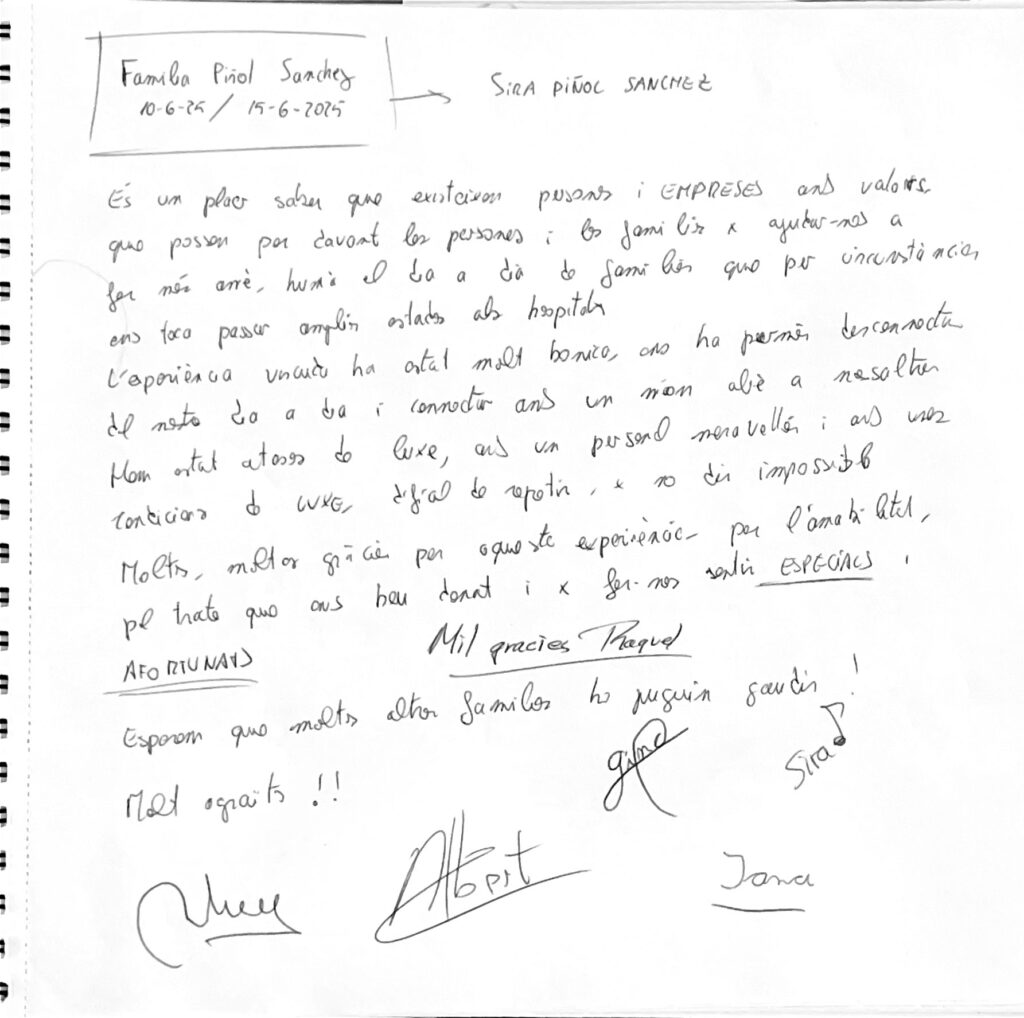 Familia Piñol Sanchez
10-6-25 / 15-6-2025
SIRA PIÑOL SANCHEZ
És un plaer saber que existeixen persones i EMPRESES amb valors,
que possen per davant les persones i les families x ajudar-nos a
fer més amè, humà el dia a dia de families que per circunstàncies
ens toca passar amplis estades als hospitals
L'experiència viscuda ha estat molt bonica, ens ha permès desconnectar
del nostre dia a dia i connectar amb un món aliè a nosaltres
Hem estat atesos de luxe, amb un personal meravellós i amb unes
condicions de LUXE, difícil de repetir, x no dir impossible
Moltes, moltes gràcies per aquesta experiència, per l'amabilitat,
pel tracte que ens heu donat i x fer-nos sentir ESPECIALS i
AFORTUNATS
Mil gracies Raquel
Esperem que moltes altres families ho puguin gaudir !
gina
Sira
Molt agraits !!
Albert
Jana